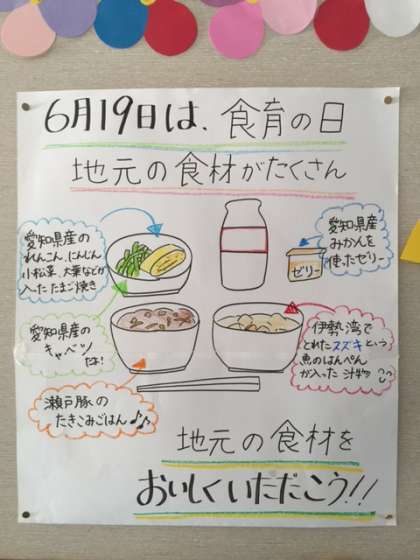 6月19日は、食育の日
地元の食材がたくさん
愛知県産の
れんこん、にんじん
小松菜、大葉などが
入ったたまご焼き
愛知県産
みかんを
使ったゼリー
ゼリー
愛知県産の
キャベツ
だよ!
伊勢湾で
とれたスズキという
魚のはんぺん
が入った汁物
瀬戸豚の
たきこみごはん♪♪
地元の食材を
おいしくいただこう!!